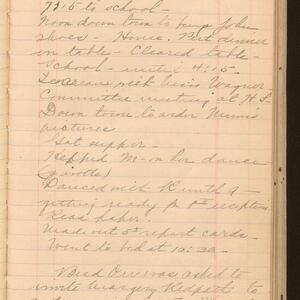 7:15 to school -
Noon down town to buy John
shoes - Home. Put dinner
on table - Cleared table -
School - until 4:15 -
Ice cream with Miss Wagner
Committee meeting at H.S.
Down town to order
pictures
Got supper -
Helped M - on her dance
(gavotte)
Danced with
getting ready for reception
Read paper.
Made out report cards -
Went to bed at 10:
was asked to
write Margery Redpath to